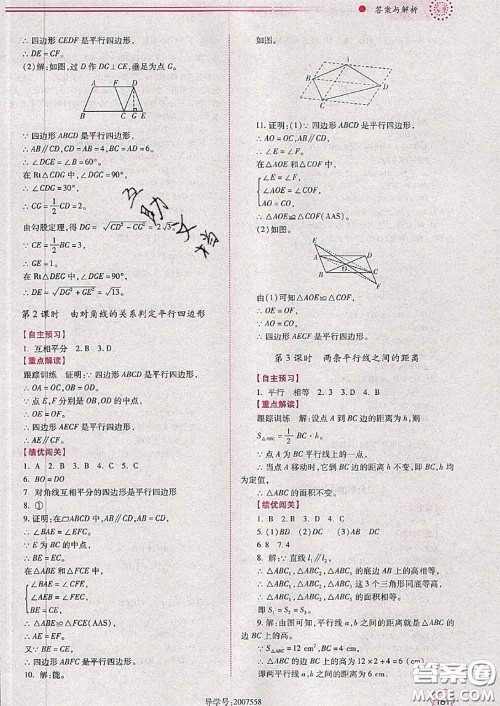 答案与解析
∴ 四边形 CEDF 是平行四边形.
∴ DE = CF.
(2)解:如图,过 D 作 DG⊥CE,垂足为点 G.
A F D
B C G E
∵ 四边形 ABCD 是平行四边形,
∴ AB∥CD, AD = BC = 6.
∴ ∠DCE = ∠B = 60°.
在 Rt△DCG 中, ∠DGC = 90°,
∴ CG = 1/2 CD = 2.
由勾股定理,得 DG = √(CD² − CG²) = 2√3.
∵ CE = 1/2 BC = 3,
∴ GE = 1.
在 Rt△DEG 中, ∠DGE = 90°,
∴ DE = √(DG² + GE²) = √13.
第 2 课时 由对角线的关系判定平行四边形
【自主预习】
1. 互相平分 2. B 3. D
【重点解读】
跟踪训练 证明:∵ 四边形 ABCD 是平行四边形,
∴ OA = OC, OB = OD.
∵ 点 E,F 分别是 OB, OD 的中点,
∴ OE = OF.
∴ 四边形 AECF 是平行四边形.
【绩优闯关】
1. A 2. B 3. B 4. C 5. C
6. BO = DO
7. 对角线互相平分的四边形是平行四边形
8. ①
9. 证明:在▱ABCD 中, AB∥CD, AB = CD.
∴ ∠ABE = ∠FCE.
∵ E 为 BC 的中点,
∴ BE = EC.
在△ABE 和△FCE 中,
∠ABE = ∠FCE,
BE = CE,
∴ △ABE≌△FCE(AAS).
∴ AE = EF.
又∵ BE = CE,
∴ 四边形 ABFC 是平行四边形.
10. 解:能.
如图.
11. 证明:(1)∵ 四边形 ABCD 是平行四边形,
∴ AO = CO, AB∥CD.
∴ ∠E = ∠F.
在△AOE 和△COF 中,
∠E = ∠F,
AO = CO,
∴ △AOE≌△COF(AAS).
(2)如图.
由(1)可知
△AOE≌△COF,
∴ OE = OF.
∵ AO = CO,
∴ 四边形 AECF 是平行四边形.
第 3 课时 两条平行线之间的距离
【自主预习】
1. 平行 相等 2. 3 3. D 4. B
【重点解读】
跟踪训练 解:设点 A 到 BC 边的距离为 h,则
S△ABC = 1/2 BC·h.
∵ 点 A 为平行线上的一点,
∴ 当点 A 移动时,它到 BC 边的距离 h 不变,即
为定值,
∴ △ABC 的面积不变.
【绩优闯关】
1. B 2. B 3. C 4. D
5. (1)BD (2)DC (3)AB DC
6. 8 7. 4
8. 解:∵ 直线 l₁∥l₂,
∴ △ABC₁, △ABC₂, △ABC₃ 的底边 AB 上的高相等,
∴ △ABC₁, △ABC₂, △ABC₃ 这 3 个三角形同底等高,
∴ △ABC₁, △ABC₂, △ABC₃ 的面积相等,
即 S₁ = S₂ = S₃.
9. 解:由图可知,平行线 a,b 之间的距离就是△ABC 的
边 BC 上的高.
∵ S△ABC = 12 cm², BC = 6 cm,
∴ △ABC 中 BC 边上的高为 12 × 2 ÷ 6 = 4 (cm).
即两平行线 a,b 之间的距离为 4 cm.
导学号:2007558